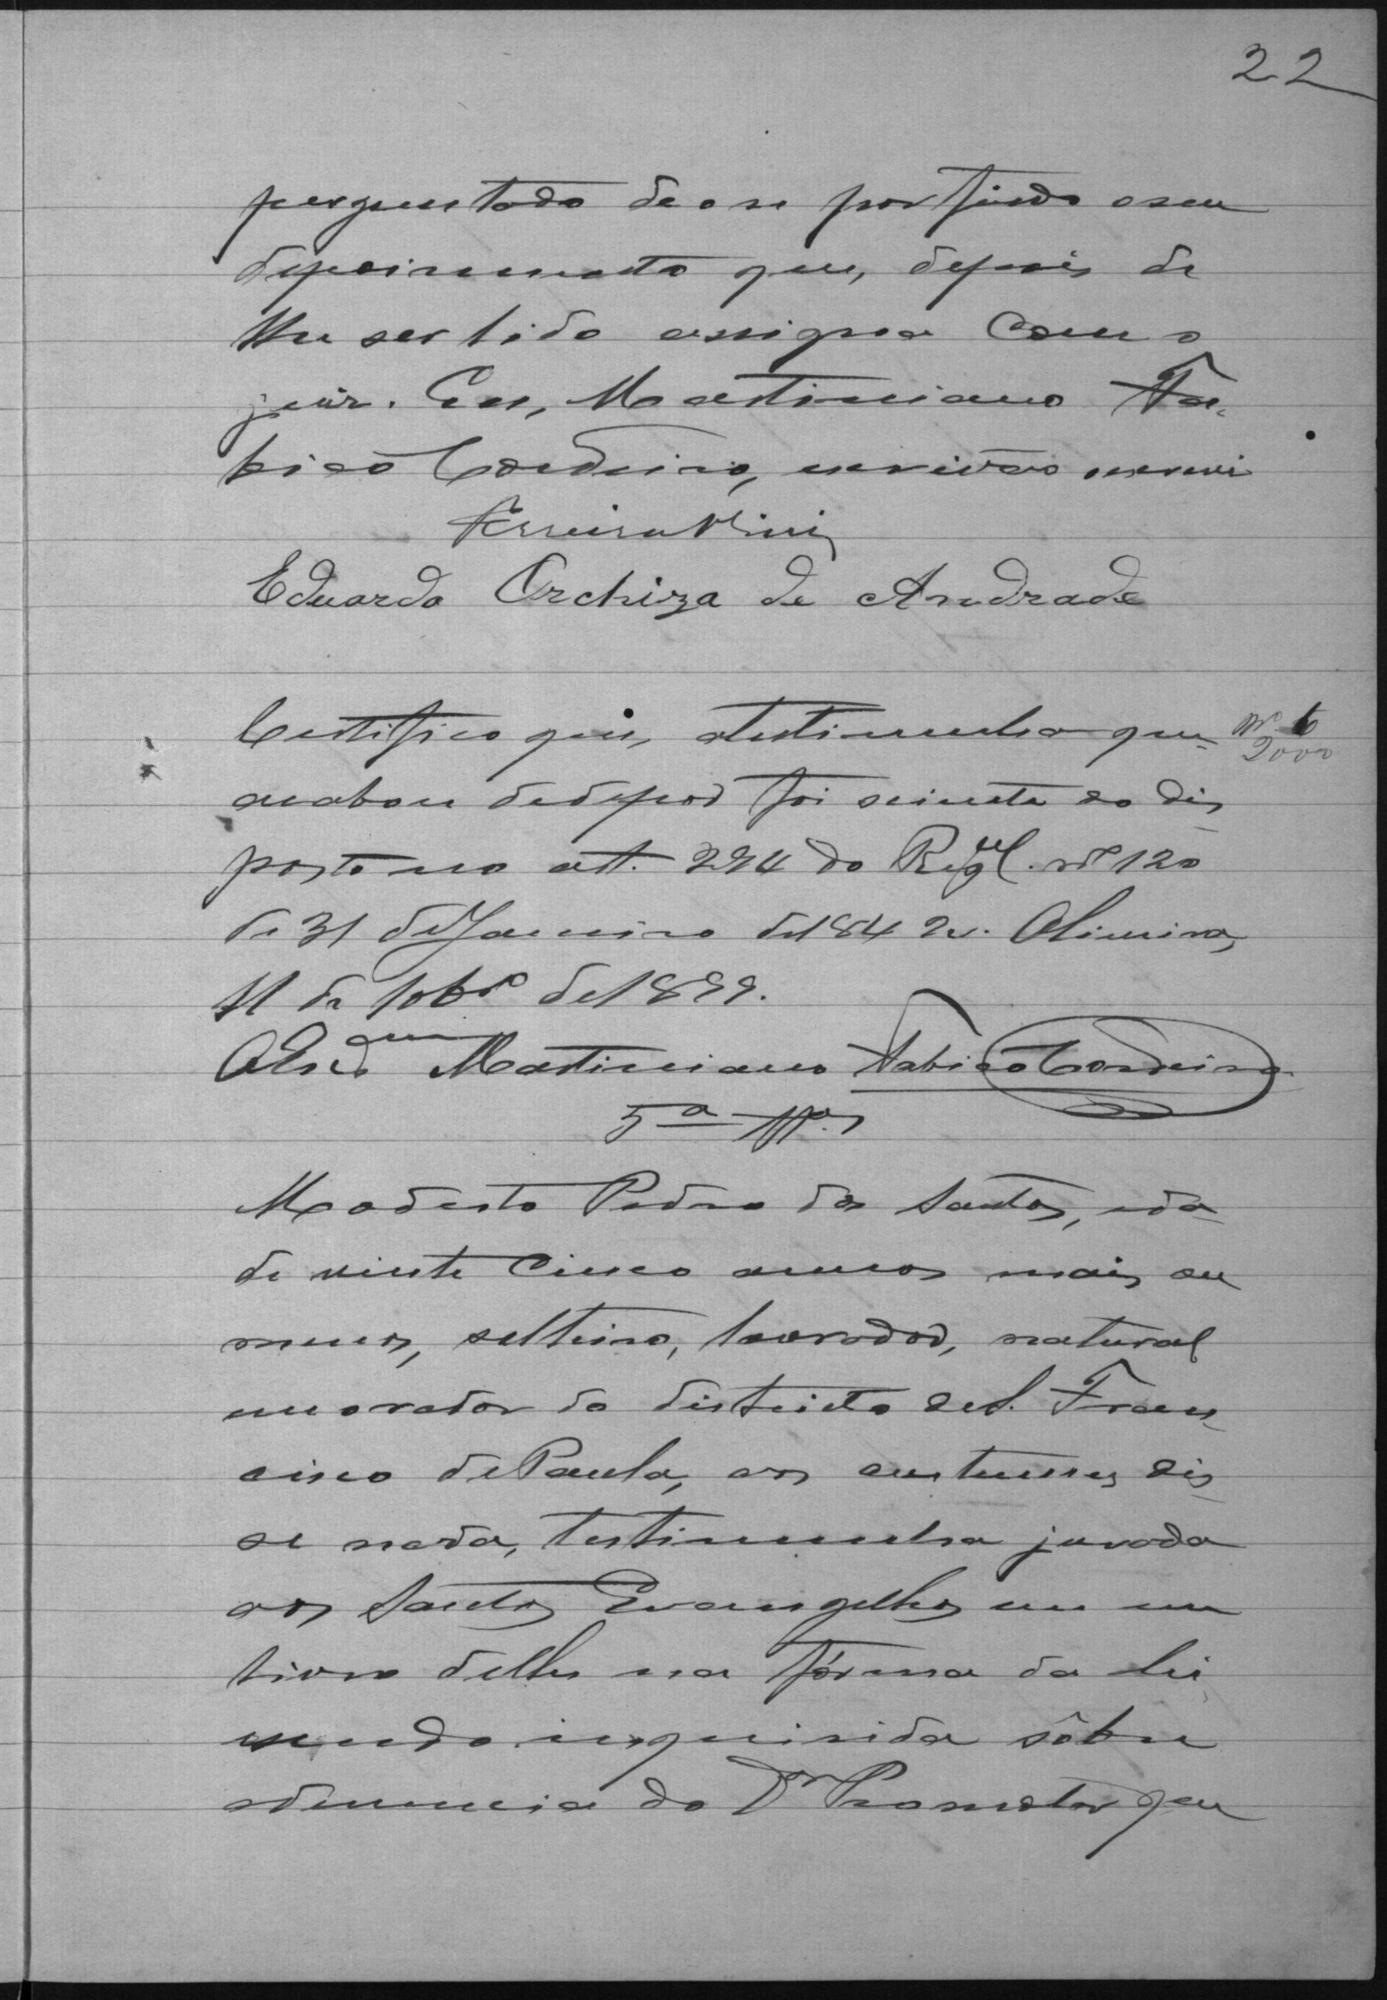 22
perguntado deo se por findo o seu
depoimento que, depois de
lhe ser lido assigna com o
juiz. Eu, Martiniano Fa-
bico Cordeiro, escrivão o escrevi
Ferreira
Eduardo Orchiza de Andrade
Certifico que, a testimunha que
acabou de depor foi sciente do dis
posto no art. 294 do Regul. nº 120
de 31 de Janeiro de 1842. Oliveira,
11 de 10bro de 1899.
O Escram Martiniano Fabico Cordeiro
2000
5ª Ttª
Modesto Pedro dos Santos, ida-
de vinte cinco annos mais ou
menos, solteiro, lavrador, natural
morador do districto de S. Fran
cisco de Paula, aos custumes dis
se nada, testimunha jurada
aos Santos Evangelhos em um
livro delles na fórma da lei
sendo inquirida sôbre
a denuncia do Dr Promotor que